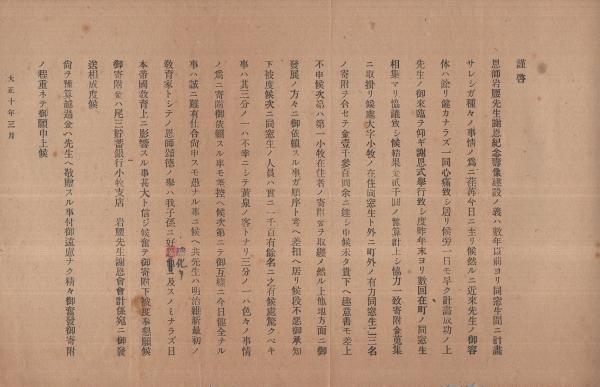 謹啓
恩師岩腰先生謝恩紀念壽像建設ノ義ハ數年以前ヨリ同窓生間ニ計畫
サレシガ種々ノ事情ノ爲ニ荏苒今日ニ至リ候然ルニ近來先生ノ御容
体ハ餘リ健カナラズ一同心痛致シ居リ候旁一日モ早ク計畫成功ノ上
先生ノ御來臨ヲ仰ギ謝恩式擧行致シ度昨年末ヨリ數回在町ノ同窓生
相集マリ協議致シ候結果金貳千圓ノ豫算計上シ協力一致寄附金蒐集
ニ取掛リ候處大字小牧ノ在住同窓生ト外ニ町外ノ有力同窓生二三名
ノ寄附ヲ合セテ金壹千參百圓余ニ達シ申候未タ貴下ヘ趣意書モ差上
不申候次第ハ第一小牧在住者ノ寄附金ヲ取纒メ然ル上他地方面ニ御
發展ノ方々ニ御依頼スル事ガ順序ト考ヘ差扣ヘ居リ候段不惡御承知
下被度候次ニ同窓生ノ人員ハ實ニ一千百有餘名ニ之有候處驚クベキ
事ハ其三分ノ一ハ不幸ニシテ黄泉ノ客トナリ三分ノ一ハ色々ノ事情
ノ爲ニ寄附御依頼スル事モ差控ヘ候次第ニテ御互樣ニ今日健全ナル
事ハ誠ニ難有仕合尚申スモ愚ナル事ニ候ヘ共先生ハ明治維新最初ノ
教育家トシテノ恩師頌德ノ擧ハ我子孫ニ好 及スノミナラズ日
本帝國教育上ニ影響スル事甚大ト信ジ候奮テ御寄附下被度奉懇願候
御寄附金ハ尾三貯蓄銀行小牧支店 岩腰先生謝恩會會計係宛ニ御發
送相成度候
尚ヲ豫算超過金ハ先生ヘ敬贈スル事付御遠慮ナク精々御奮發御寄附
ノ程重ネテ御願申上候
大正十年三月